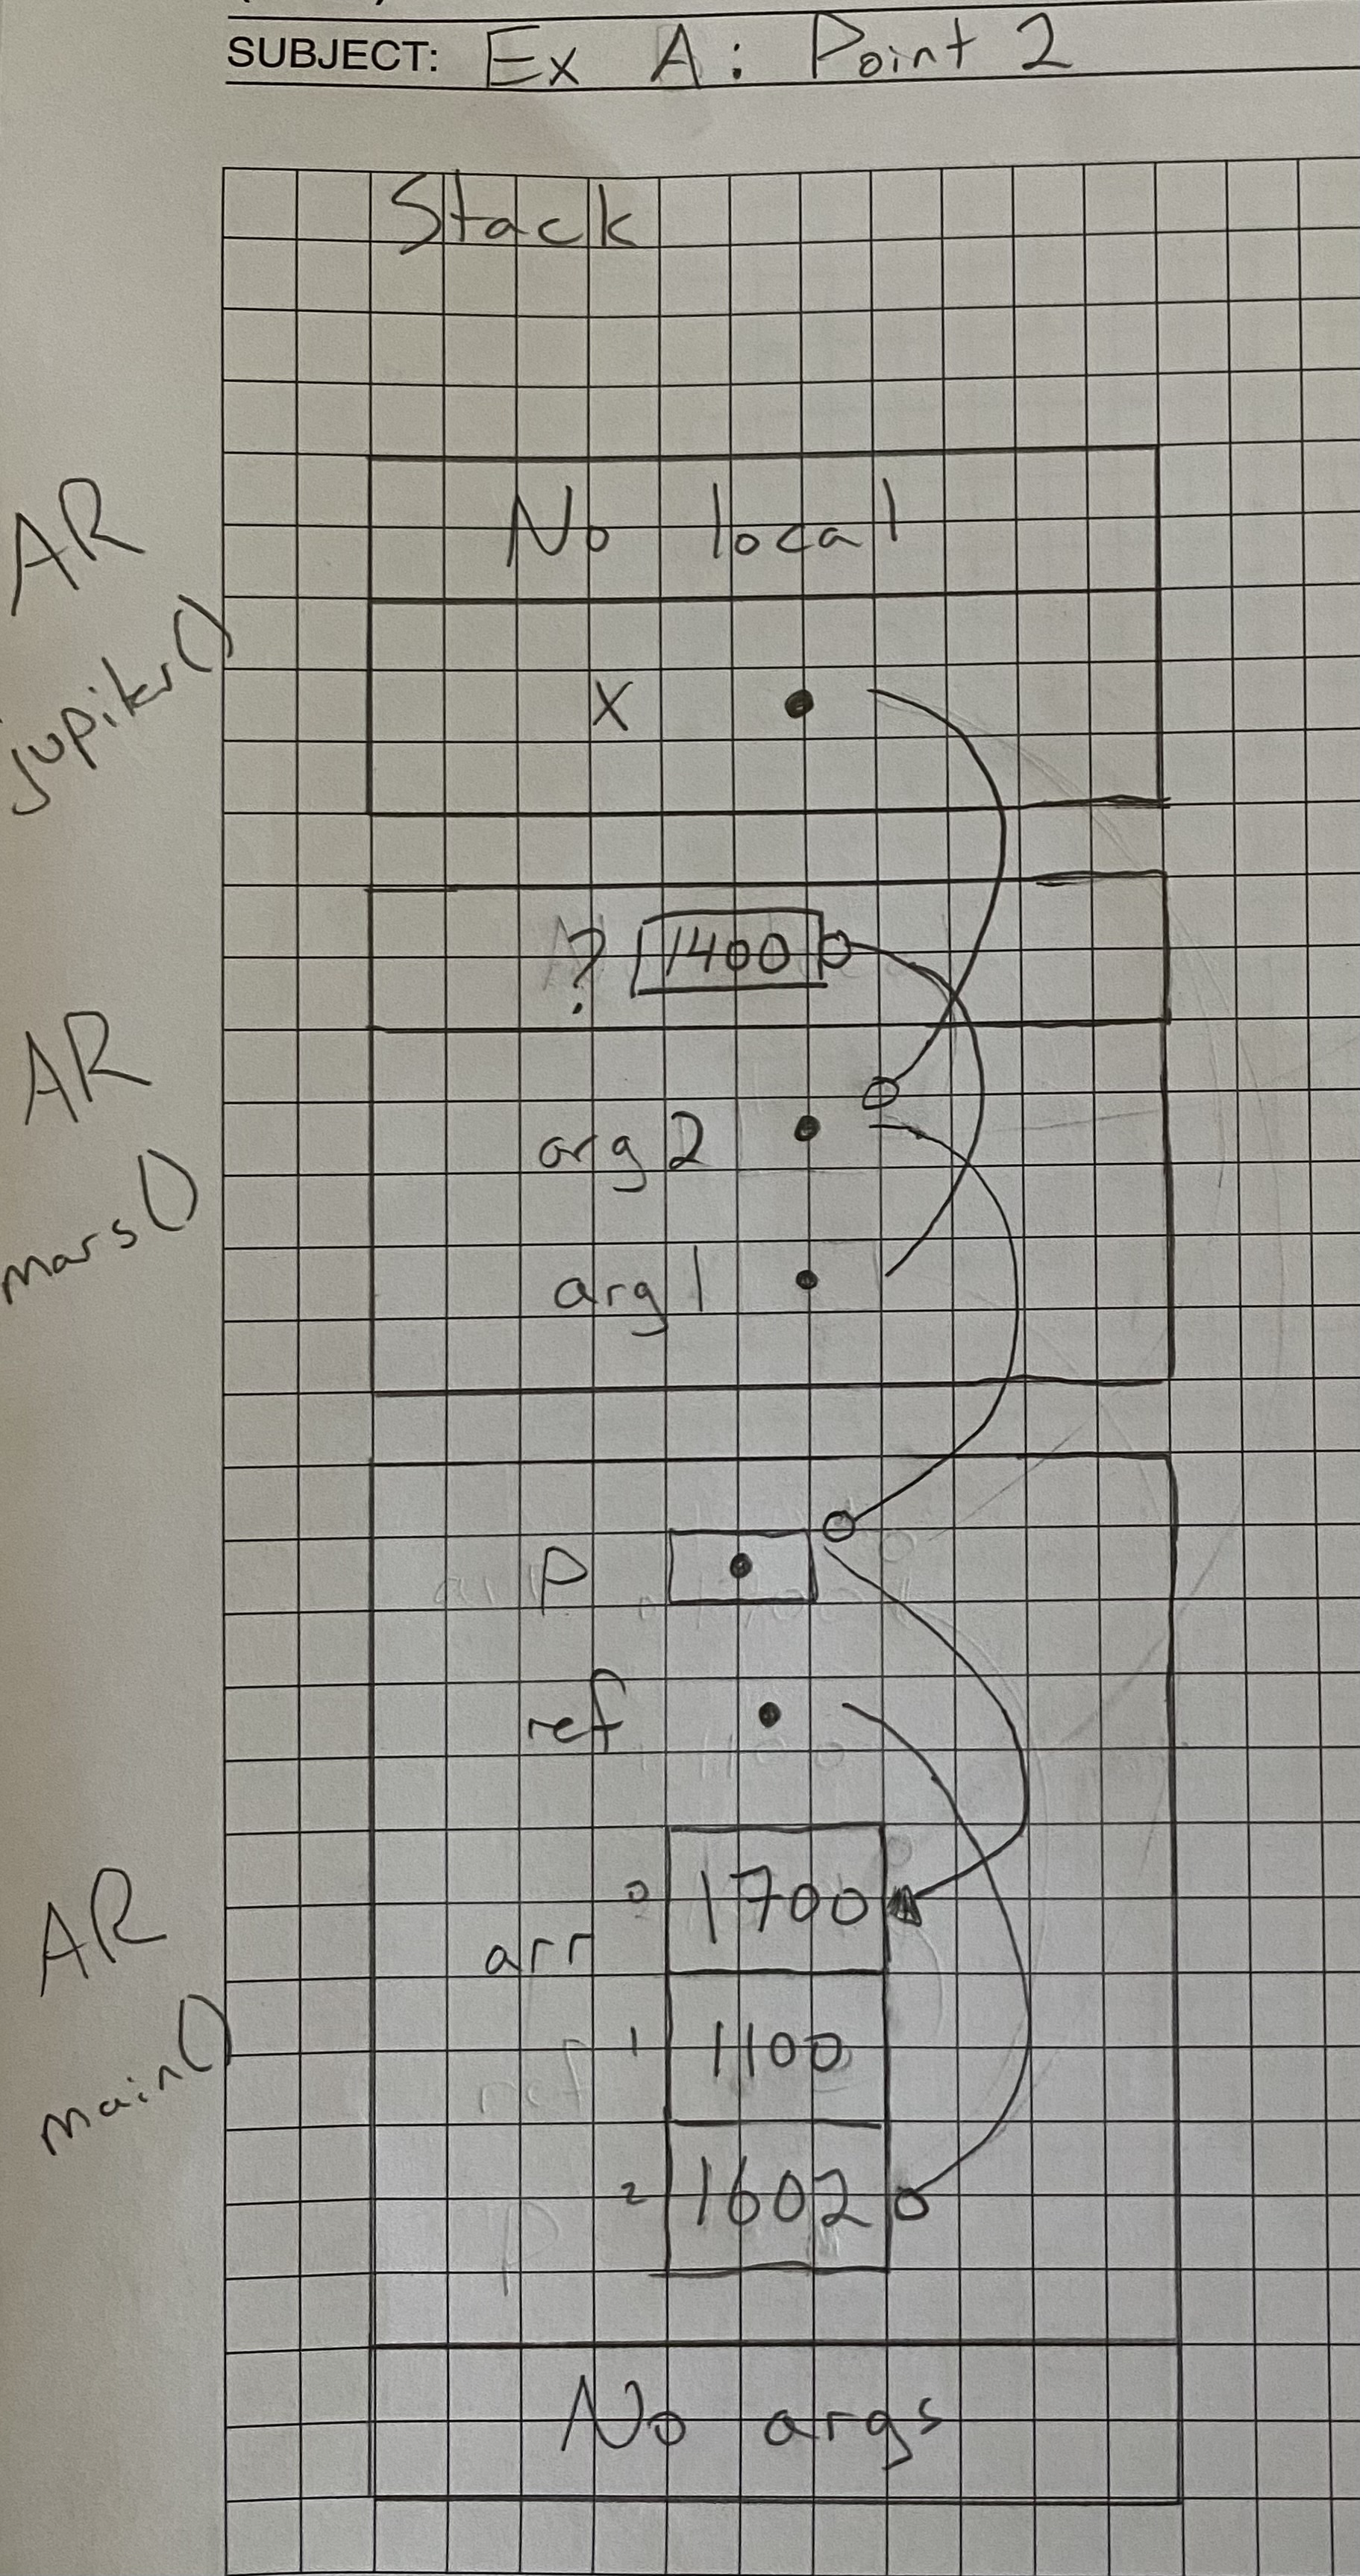 SUBJECT: Ex A: Point 2
Stack
AR
jupiter()
No local
x
AR
mars()
? 1400
arg 2
arg 1
P
ref
AR
main()
arr
0 1700
1 1100
2 1602
No args